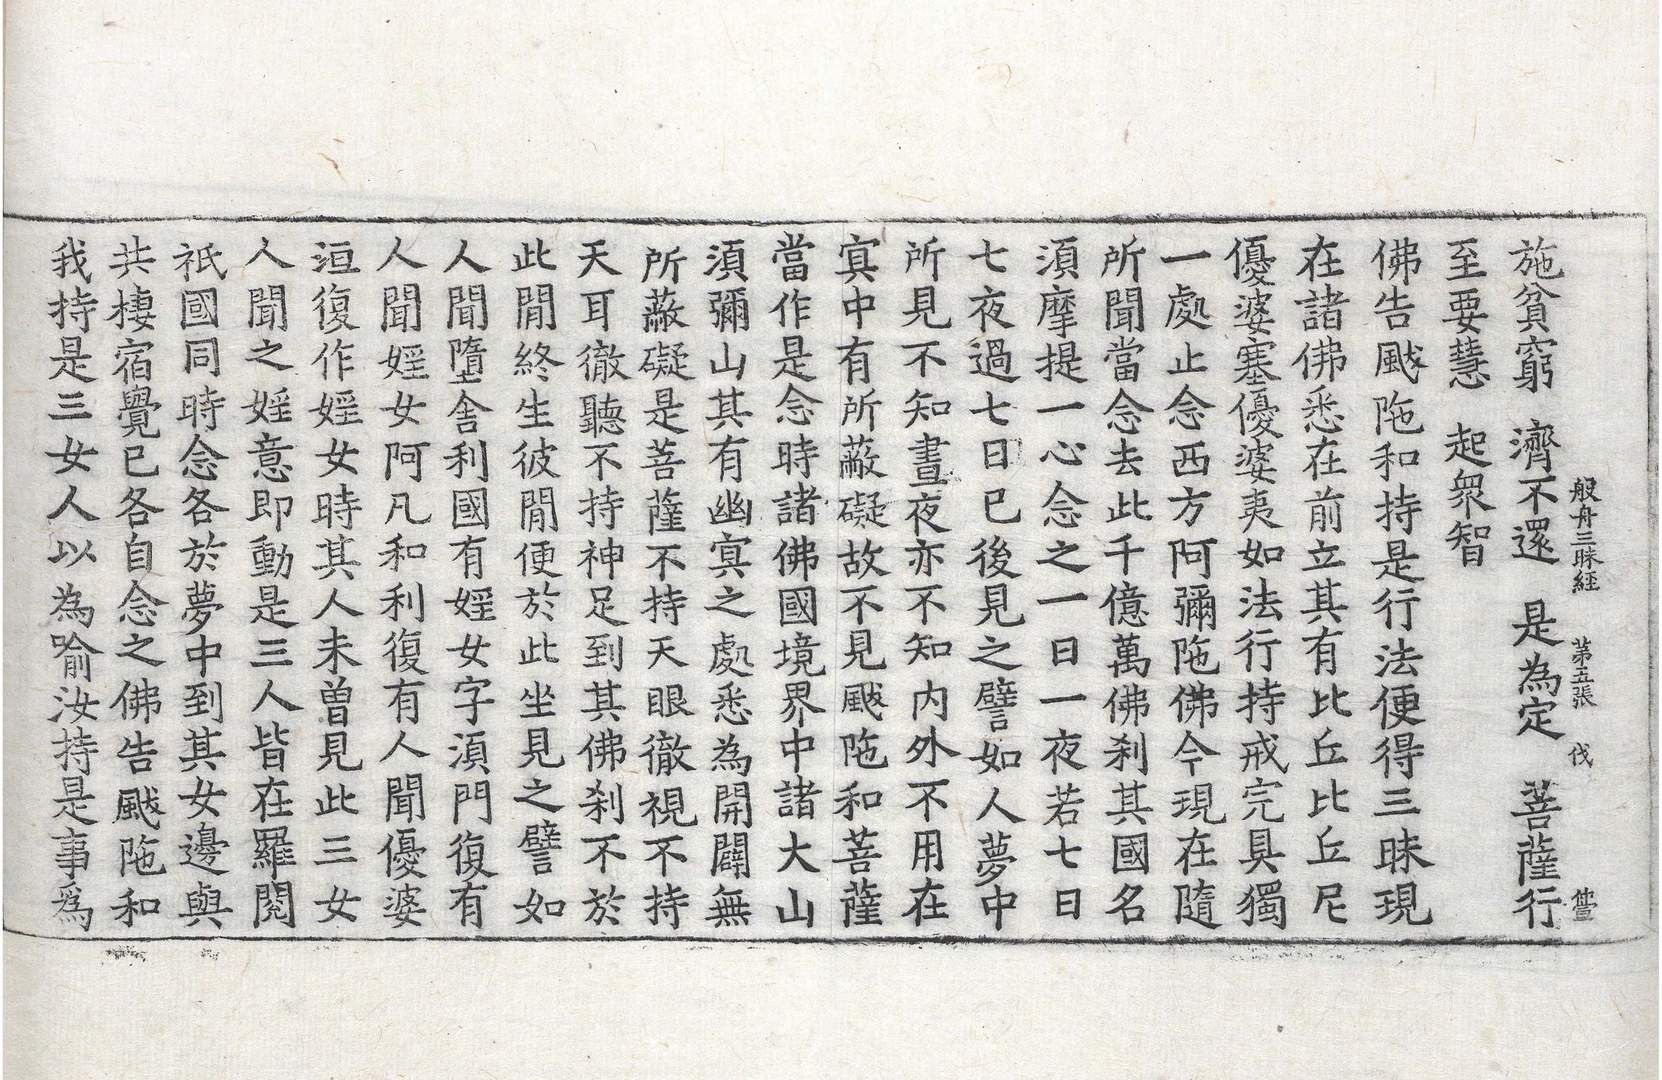 般舟三昧經 第五張 伐
施貧窮 濟不還 是為定 菩薩行
至要慧 起衆智
佛告颰陁和持是行法便得三昧現
在諸佛悉在前立其有比丘比丘尼
優婆塞優婆夷如法行持戒完具獨
一處止念西方阿彌陁佛今現在隨
所聞當念去此千億萬佛刹其國名
須摩提一心念之一日一夜若七日
七夜過七日已後見之譬如人夢中
所見不知晝夜亦不知内外不用在
寘中有所蔽礙故不見颰陁和菩薩
當作是念時諸佛國境界中諸大山
須彌山其有幽寘之處悉為開闢無
所蔽礙是菩薩不持天眼徹視不持
天耳徹聽不持神足到其佛刹不於
此閒終生彼閒便於此坐見之譬如
人聞墮舍利國有婬女字須門復有
人聞婬女阿凡和利復有人聞優婆
洹復作婬女時其人未曽見此三女
人聞之婬意即動是三人皆在羅閱
祇國同時念各於夢中到其女邊與
共棲宿覺已各自念之佛告颰陁和
我持是三女人以為喻汝持是事爲